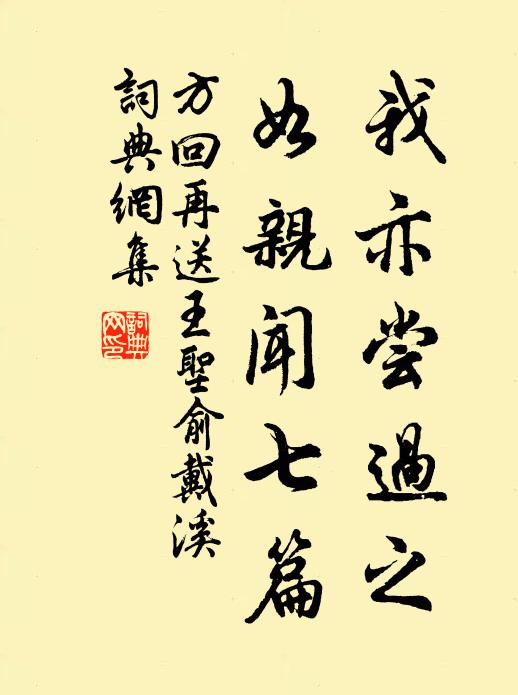 我亦尝過之
如親聞七篇
方回再送王聖俞戴溪
詞典網集
詞典
网印